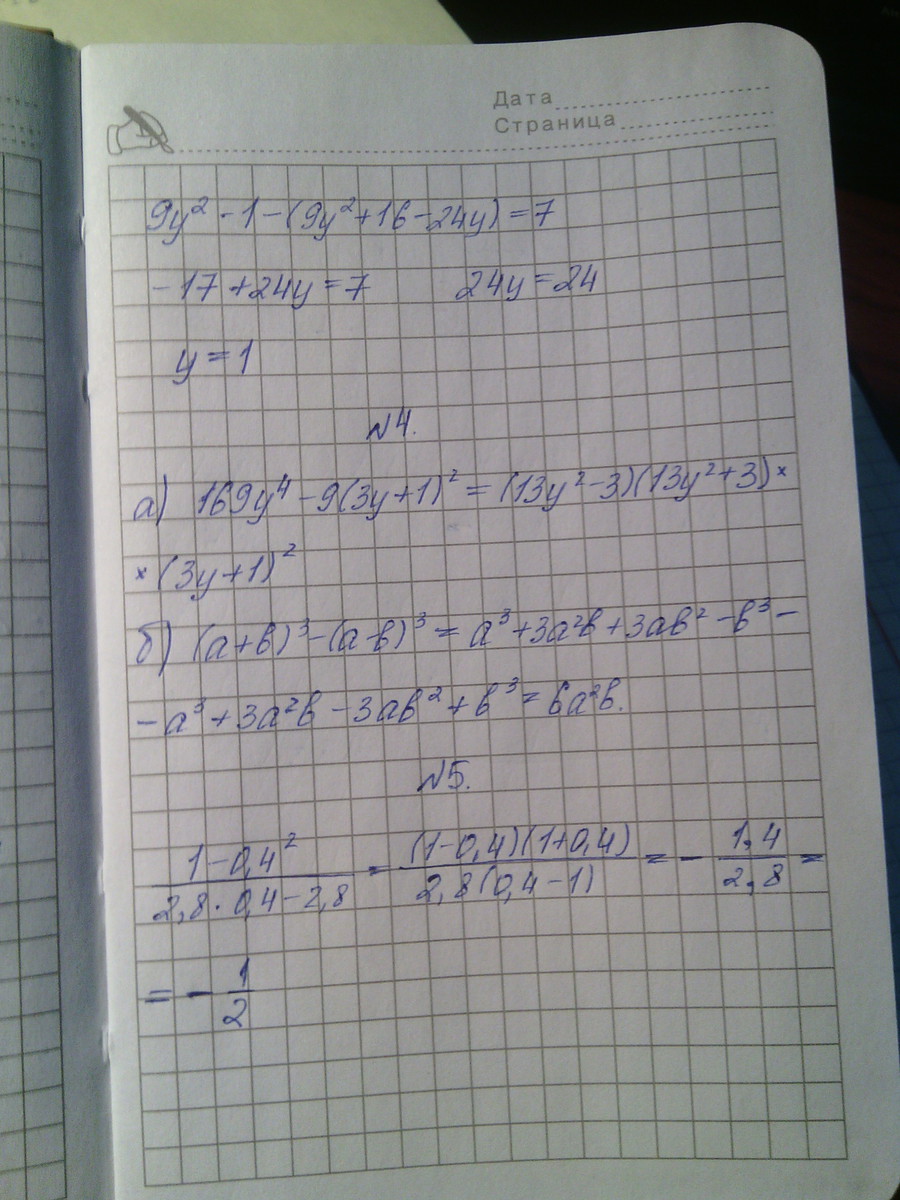 Дата
Страница
9y² - 1 - (9y² + 16 - 24y) = 7
- 17 + 24y = 7 24y = 24
y = 1
№4.
а) 169y⁴ - 9(3y+1)² = (13y² - 3)(13y² + 3) ×
× (3y+1)²
б) (a+b)³ - (a-b)³ = a³ + 3a²b + 3ab² - b³ -
- a³ + 3a²b - 3ab² + b³ = 6a²b.
№5.
(1 - 0,4²)/(2,8 · 0,4 - 2,8) = ((1-0,4)(1+0,4))/(2,8(0,4-1)) = - 1,4/2,8 =
= - 1/2